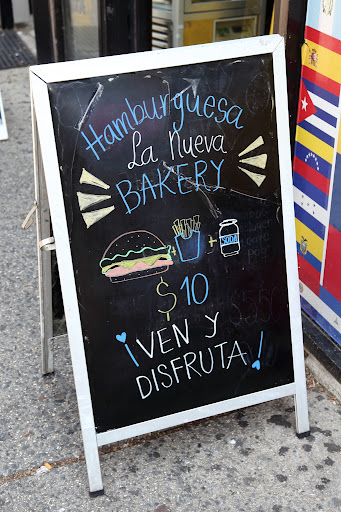 Hamburguesa
La Nueva
BAKERY
+ + SODA
$10
¡VEN Y
DISFRUTA!